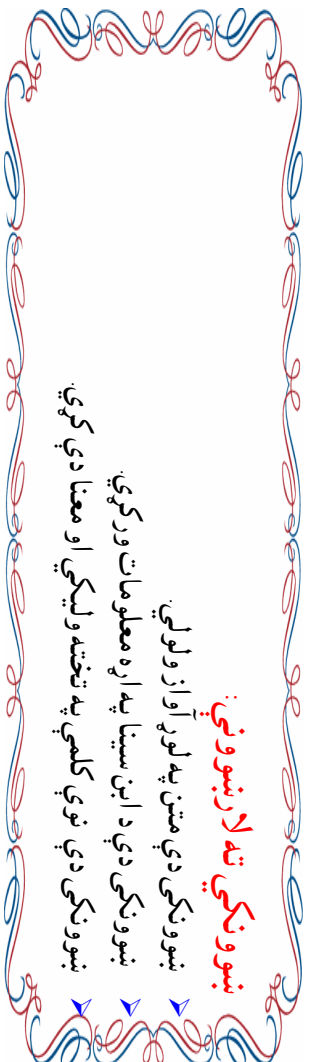 ښوونکي ته لارښوونې:
ښوونکی دې متن په لوړ آواز ولولي.
ښوونکی دې د ابن سینا په اړه معلومات ورکړي.
ښوونکی دې نوې کلمې په تخته ولیکي او معنا دې کړي.